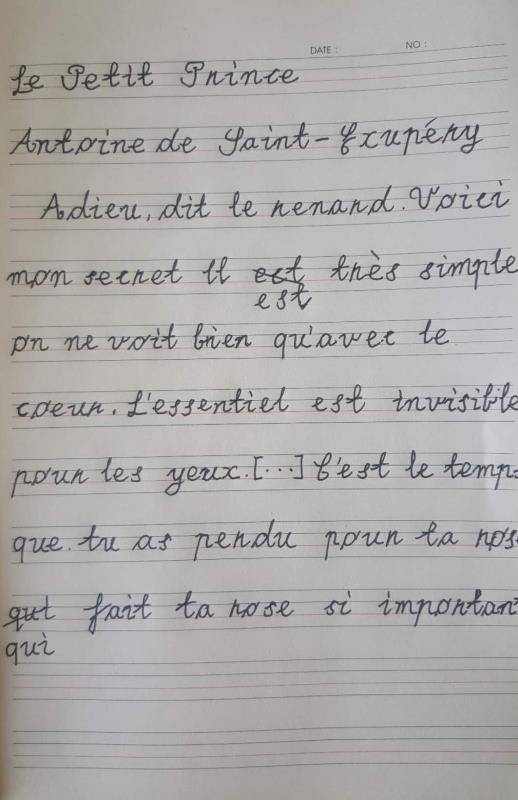 DATE : NO :
Le Petit Prince
Antoine de Saint-Exupéry
Adieu, dit le renard. Voici
mon secret Il est très simple
est
on ne voit bien qu'avec le
coeur. L'essentiel est invisible
pour les yeux. [...] C'est le temps
que tu as perdu pour ta ros
qui fait ta rose si importan
qui